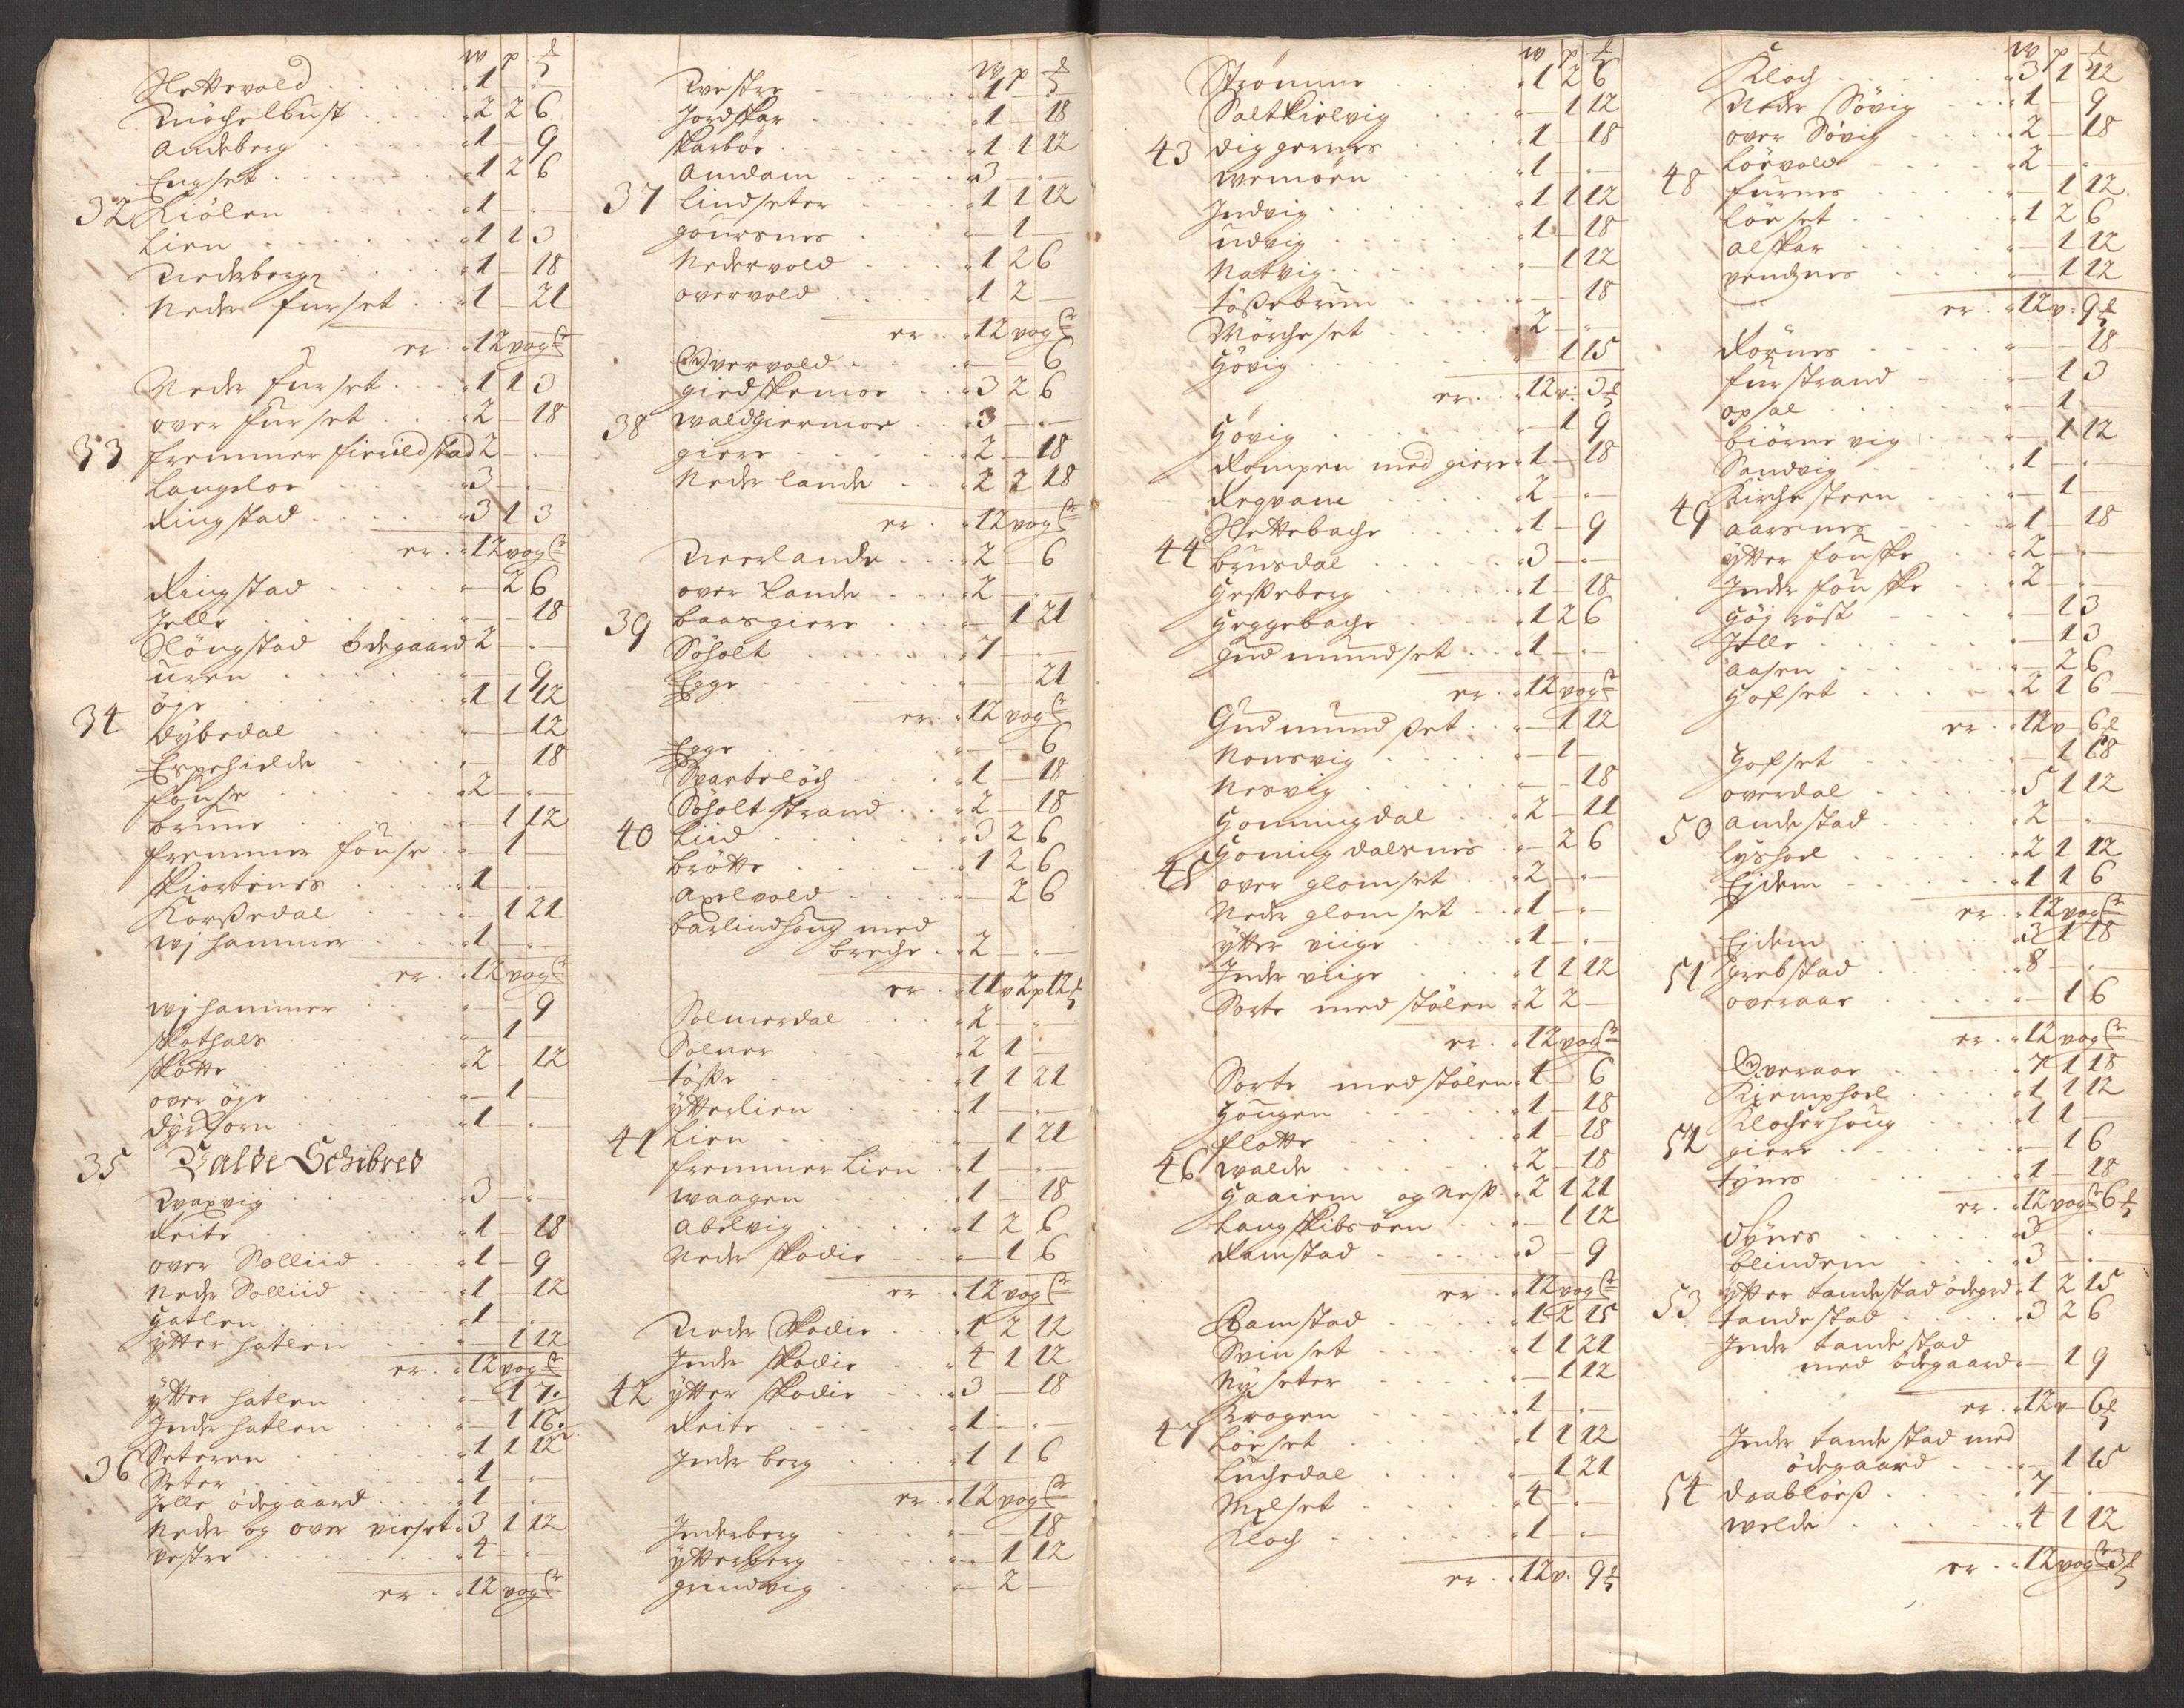 w p ȴ
Slettevold . . . . . 1 - -
Møchelbust . . . 2 2 6
Andeberg . . . 1 - 9
Engset . . . 1 2 6
32 Kiølen . . . 1 - -
Lien . . . 1 1 3
Nederberg . . . 1 - 18
Neder furset . . 1 - 21
er . 12 vog
Neder furset . . 1 1 3
over furset . . 2 - 18
33 fremmer fierildstad 2 - -
Langeloe . . 3 - -
Ringstad . . . 3 1 3
er . 12 vog
Ringstad . . . - 2 6
Jelle . . . - - 18
Slöngstad ödegaard 2 - -
uren . . . - - 9
öje . . . 1 1 12
34 Dybedal . . . - - 12
Espehielde . . . - - 18
fouse . . . 2 - -
brune . . . - 1 12
fremmer fouse . . - 1 -
Skiortenes . . . 1 - -
Korssedal . . . - 1 21
wj hammer . . . 1 - -
er . 12 vog
wj hammer . . . - - 9
Skothals . . . - 1 -
Skotte . . . 2 - 12
over öje . . . - 1 -
Dyrkorn . . . 1 - -
35 Valde Schibred
Rvaxvig . . . 3 - -
Reite . . . 1 - 18
over Solliid . . . 1 - 9
Neder Solliid . . . 1 - 12
hatlen . . . 1 - -
ytter hatlen . . . - 1 12
er . 12 vog
ytter hatlen . . . - 1 7
Inder hatlen . . . - 1 16
Seteren . . . 1 1 12
36 Seter . . . 1 - -
Jelle ödegaard . . . 1 - -
Neder og over vierset . 3 1 12
vestre . . . 4 - -
er . 12 vog
w p ȴ
vestre . . . 1 - -
Jordskar . . . 1 - 18
Skarboe . . . 1 1 12
Amdam . . . 3 - -
37 lindseter . . . 1 1 12
goursnes . . . - 1 -
Nedervold . . . 1 2 6
overvold . . . 1 2 -
er . 12 vog
Overvold . . . - - 6
giedskemoe . . . 3 2 6
38 waldgiermoe . . 3 - -
giere . . . 2 - 18
Neder lande . . . 2 2 18
er . 12 vog
Neerlande . . . 2 - 6
over Lande . . . 2 - -
39 baasgiere . . . - 1 21
Söholt . . . 7 - -
Egge . . . - - 21
er . 12 vog
Egge . . . - - 6
Svartelöch . . . 1 - 18
Söholt strand . . . 2 - 18
40 Liid . . . 3 2 6
brötte . . . 1 2 6
Apelvold . . . - 2 6
barlindhoug med
breche . 2 - -
er . 11 v 2 p 12 ȴ
Solnerdal . . . 2 - -
Solner . . . 2 1 -
tösse . . . 1 1 21
ytterlien . . . 1 - -
41 Lien . . . - 1 21
fremmer Lien . . 1 - -
waagen . . . 1 - 18
abelvig . . . 1 2 6
Neder Skodie . . . - 1 6
er . 12 vog
Neder Skodie . . . 1 2 12
Inder Skodie . . . 4 1 12
42 ytter Skodie . . . 3 - 18
Reite . . . 1 - -
Inder berg . . . 1 1 6
er . 12 vog
Inderberg . . . - - 18
ytterberg . . . - 1 12
grindvig . . . - 2 -
w p ȴ
Strømme . . . 1 2 6
Saltkielvig . . . - 1 12
43 diggernes . . . 1 - 18
wemøen . . . 1 - -
Indvig . . . 1 1 12
udvig . . . 1 - 18
Natvig . . . - 1 12
tössebrun . . . - - 18
Mörcheset . . . 2 - -
hövig . . . - 1 15
er . 12 v: 3 ȴ
hövig . . . - 1 9
Rompen med giere 1 - 18
Regvam . . . 2 - -
Slettebache . . . 1 - 9
44 brusdal . . . 3 - -
hesseberg . . . 1 - 18
heggebache . . . 1 2 6
gudmundset . . . 1 - -
er . 12 vog
Gudmundset . . . - 1 12
Nonsvig . . . - 1 -
Nesvig . . . - - 18
honningdal . . . 2 - 21
honingdalsnes . . . - 2 6
45 over glomset . . . 2 - -
Neder glomset . . . 1 - -
ytter viige . . . 1 - -
Inder viige . . . 1 1 12
Sorte med stölen . 2 2 -
er . 12 vog
Sorte med stölen . 1 - 6
hougen . . . 1 - 18
flotte . . . 1 - 18
46 walde . . . 2 - 18
haaiem og Ness . . 2 1 21
langskibsören . . . - 1 12
Ramstad . . . 3 - 9
er . 12 vog
Ramstad . . . 1 2 15
Svinset . . . 1 1 21
Nyseter . . . - 1 12
Kragen . . . 1 - -
47 Löeset . . . 1 1 12
Luchedal . . . - 1 21
Melset . . . 4 - -
Kloch . . . 1 - -
er . 12 v: 9 ȴ
w p ȴ
Kloch . . . 3 1 12
Neder Sövig . . . 1 - 9
over Sövig . . . 2 - 18
Löevold . . . 2 - -
48 furnes . . . - 1 12
Löeset . . . 1 2 6
alskar . . . - 1 12
vendnes . . . - 1 12
er . 12 v. 9 ȴ
Rörnes . . . - - 18
furstrand . . . - 1 3
opsal . . . - 1 -
biörnevig . . . - 1 12
Sandvig . . . 1 - -
Kirchesteen . . . - 1 -
49 aarsnes . . . 1 - 18
ytter fouske . . . 2 - -
Inder fouske . . . 2 - -
höjröst . . . - 1 3
Jelle . . . - 1 3
aasen . . . - 2 6
hofset . . . 2 1 6
er . 12 v 6 ȴ
hofset . . . - 1 18
overdal . . . 5 1 12
50 andestad . . . 2 - -
lyshoel . . . 2 1 12
Ejdem . . . 1 1 6
er . 12 vog
Ejdem . . . 3 1 18
51 grebstad . . . 8 - -
overaae . . . - 1 6
er . 12 vog
Overaae . . . 7 1 18
Kiemphoel . . . 1 1 12
Klocherhoug . . . 1 1 -
52 giere . . . - 1 6
tynes . . . 1 - 18
er . 12 vog 6 ȴ
tynes . . . 3 - -
blindem . . . 3 - -
ytter tandestad ödegrd . 1 2 15
53 tandestad . . . 3 2 6
Inder tandestad
med ödegaard . - 1 9
er . 12 v 6 ȴ
Inder tandestad med
ödegaard . . - 1 15
54 Drablöess . . . 7 - -
welde . . . 4 1 12
er . 12 vog 3 ȴ